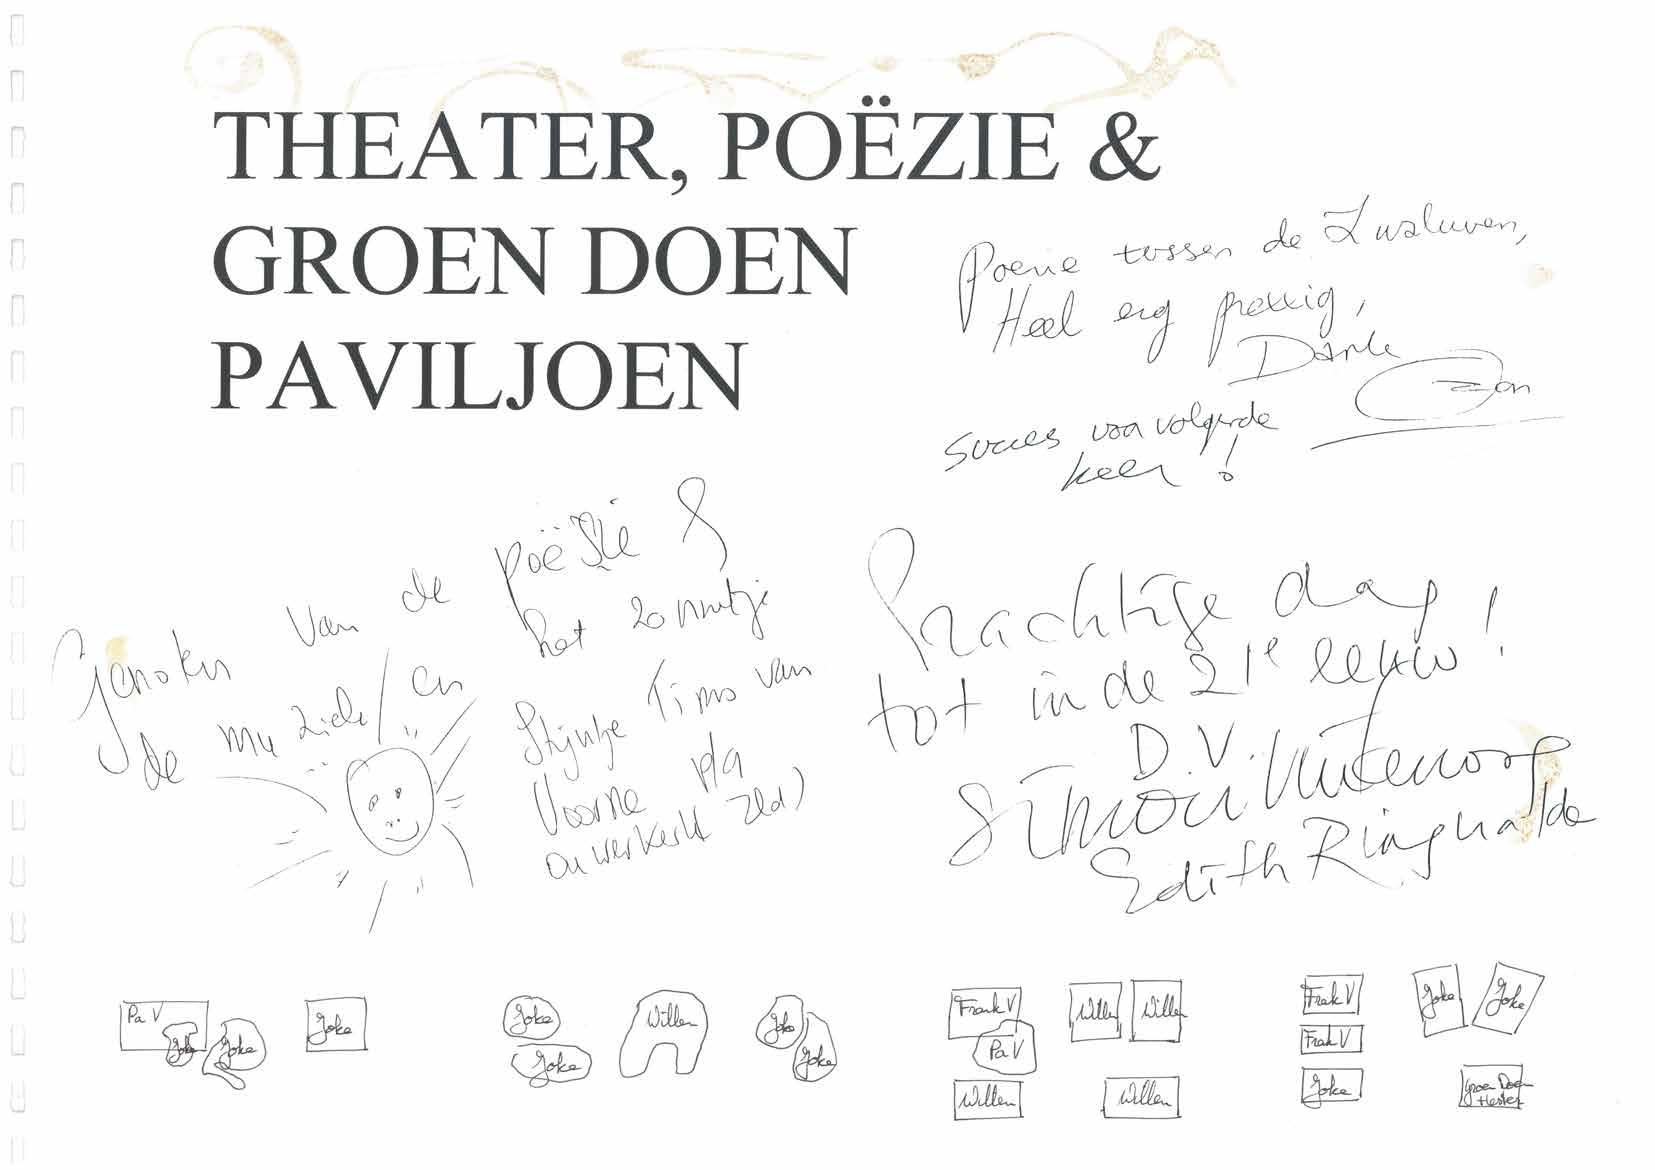 THEATER, POËZIE &
GROEN DOEN
PAVILJOEN
Poezie tussen de Zwaluwen,
Heel erg prettig,
Dank
succes voor volgende
keer!
Genoten van de poëzie &
de muziek en het zonnetje
Stijntje Timo van
Voorne
Ouwerkerk Zld)
Prachtige dag
tot in de 21e eeuw!
D.V.
Simon
Edith Ringnalda
Pa V
Joke
Joke
Joke
Joke
Joke
Willem
Joke
Joke
Frank V
Pa V
Willem
Willem
Willem
Willem
Frank V
Frank V
Joke
Joke
Joke
Groen Doen
Hester